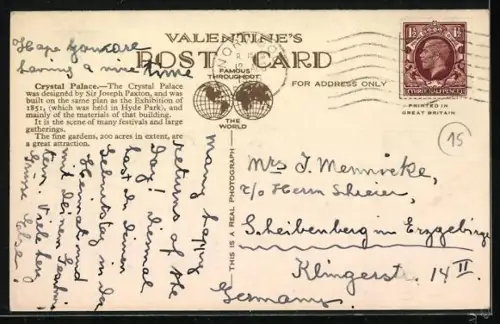 VALENTINE'S
POST CARD
FAMOUS
THROUGHOUT
THE
WORLD
FOR ADDRESS ONLY
1½ 1½
THREE HALFPENCE
PRINTED IN
GREAT BRITAIN
Hope you are
having a nice time
Crystal Palace.—The Crystal Palace
was designed by Sir Joseph Paxton, and was
built on the same plan as the Exhibition of
1851, (which was held in Hyde Park), and
mainly of the materials of that building.
It is the scene of many festivals and large
gatherings.
The fine gardens, 200 acres in extent, are
a great attraction.
Many happy
returns of the
Day! Diesmal
hast Du Deinen
Geburtstag in der
Heimat und
mit Deinen
Viele herz.
Grüsse Else
THIS IS A REAL PHOTOGRAPH
15
Mrs J. Mennicke,
c/o Herrn Scheier,
Scheibenberg im Erzgebirge
Klingerstr. 14 II
Germany.